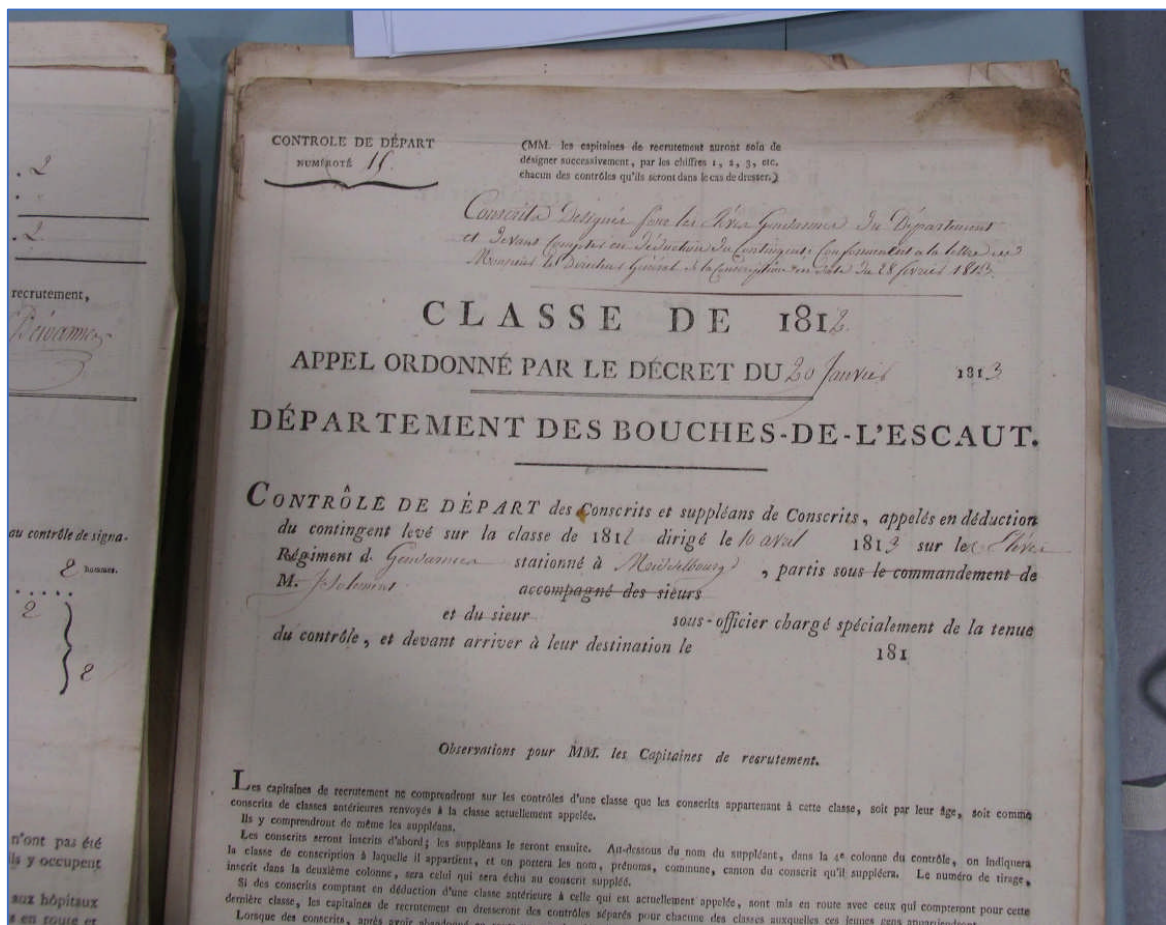 . 2
. 2
recrutement,
au contrôle de signa-
2 hommes.
2
2
n'ont pas été
ils y occupent
aux hôpitaux
s en route et
CONTROLE DE DÉPART
NUMÉROTÉ
(MM. les capitaines de recrutement auront soin de
désigner successivement, par les chiffres 1, 2, 3, etc.
chacun des contrôles qu'ils seront dans le cas de dresser.)
Conscrits Désignés pour les Elèves Gendarmes du Département
et devant Comptés en déduction du Contingent, Conformément à la lettre de
Monsieur le Directeur Général de la Conscription en date du 28 février 1813.
CLASSE DE 1812.
APPEL ORDONNÉ PAR LE DÉCRET DU 20 Janvier 1813
DÉPARTEMENT DES BOUCHES-DE-L'ESCAUT.
CONTRÔLE DE DÉPART des Conscrits et suppléans de Conscrits, appelés en déduction
du contingent levé sur la classe de 1812 dirigé le 10 avril 1813 sur les Elèves
Régiment d. Gendarmes stationné à Middelbourg, partis sous le commandement de
M. Isolement accompagné des sieurs
et du sieur sous-officier chargé spécialement de la tenue
du contrôle, et devant arriver à leur destination le 181
Observations pour MM. les Capitaines de recrutement.
Les capitaines de recrutement ne comprendront sur les contrôles d'une classe que les conscrits appartenant à cette classe, soit par leur âge, soit comme
conscrits de classes antérieures renvoyés à la classe actuellement appelée.
Ils y comprendront de même les suppléans.
Les conscrits seront inscrits d'abord; les suppléans le seront ensuite. Au-dessous du nom du suppléant, dans la 4e colonne du contrôle, on indiquera
la classe de conscription à laquelle il appartient, et on portera les nom, prénoms, commune, canton du conscrit qu'il suppléera. Le numéro de tirage,
inscrit dans la deuxième colonne, sera celui qui sera échu au conscrit suppléé.
Si des conscrits comptant en déduction d'une classe antérieure à celle qui est actuellement appelée, sont mis en route avec ceux qui compteront pour cette
dernière classe, les capitaines de recrutement en dresseront des contrôles séparés pour chacune des classes auxquelles ces jeunes gens appartiendront.
Lorsque des conscrits, après avoir abandonné